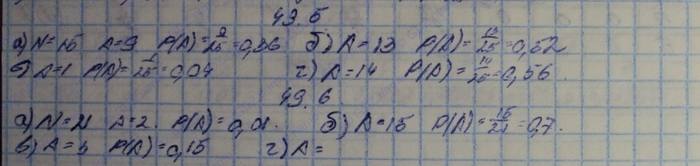 49.5
а) N=25 A=9 P(A)=9/25=0,36 б) A=13 P(A)=13/25=0,52
в) A=1 P(A)=1/25=0,04 г) A=14 P(A)=14/25=0,56.
49.6
а) N=21 A=2. P(A)=0,01. б) A=15 P(A)=15/21=0,7.
в) A= P(A)=0,15 г) A=